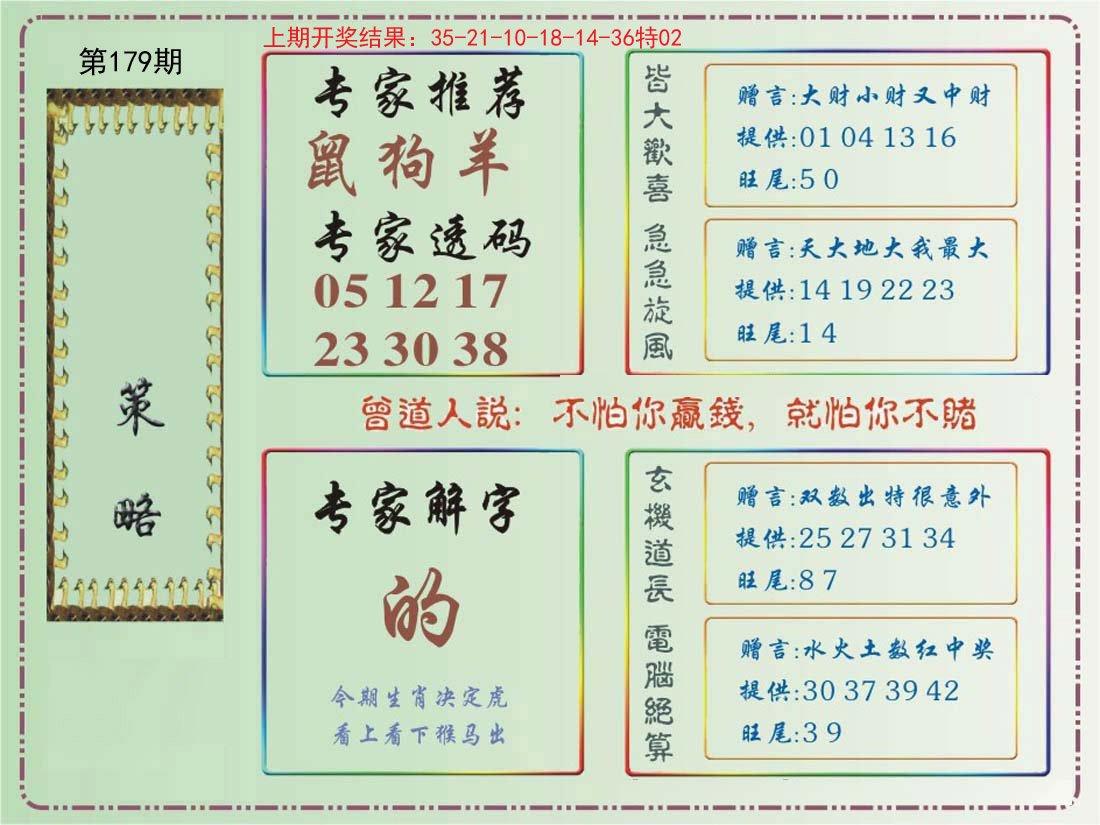 上期开奖结果：35-21-10-18-14-36特02
第179期
策略
专家推荐
鼠狗羊
专家透码
05 12 17
23 30 38
皆大歡喜
赠言:大财小财又中财
提供:01 04 13 16
旺尾:5 0
急急旋風
赠言:天大地大我最大
提供:14 19 22 23
旺尾:1 4
曾道人説: 不怕你贏錢, 就怕你不賭
专家解字
的
今期生肖决定虎
看上看下猴马出
玄機道長
赠言:双数出特很意外
提供:25 27 31 34
旺尾:8 7
電腦絕算
赠言:水火土数红中奖
提供:30 37 39 42
旺尾:3 9